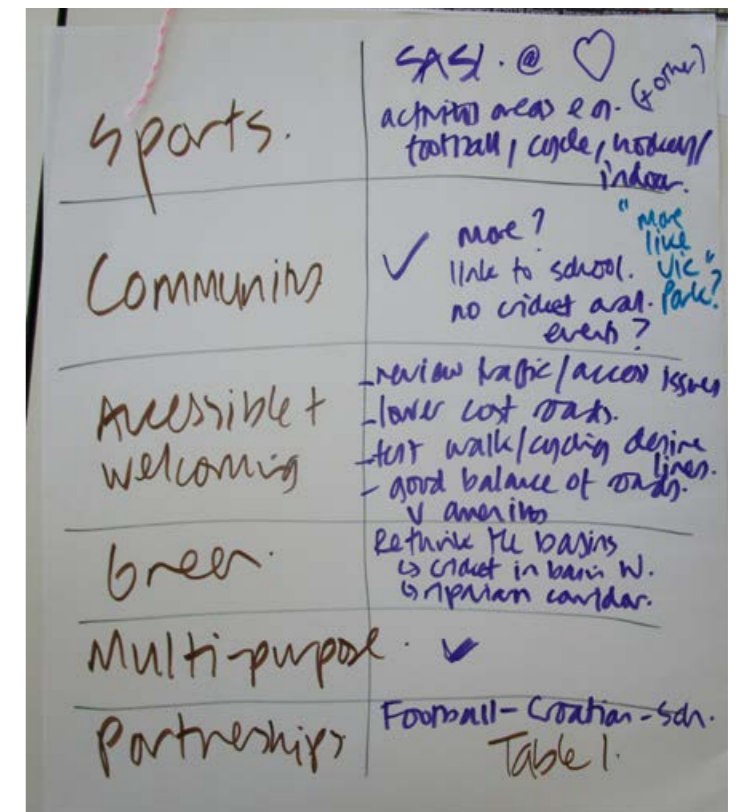 Sports.
SASI. @ ♡
activity areas e.g. (+ other)
football, cycle, hockey/
indoor.
Community
✓ more?
link to school.
no cricket oval.
events?
"more
like
Vic"
Park?
Accessible +
welcoming
- review traffic/access issues
- lower cost roads.
- test walk/cycling desire
lines.
- good balance of roads.
v amenities
Green.
Rethink the basins
↳ cricket in basin W.
↳ riparian corridor.
Multi-purpose.
✓
Partnerships
Football - Croatian - Sch.
Table 1.